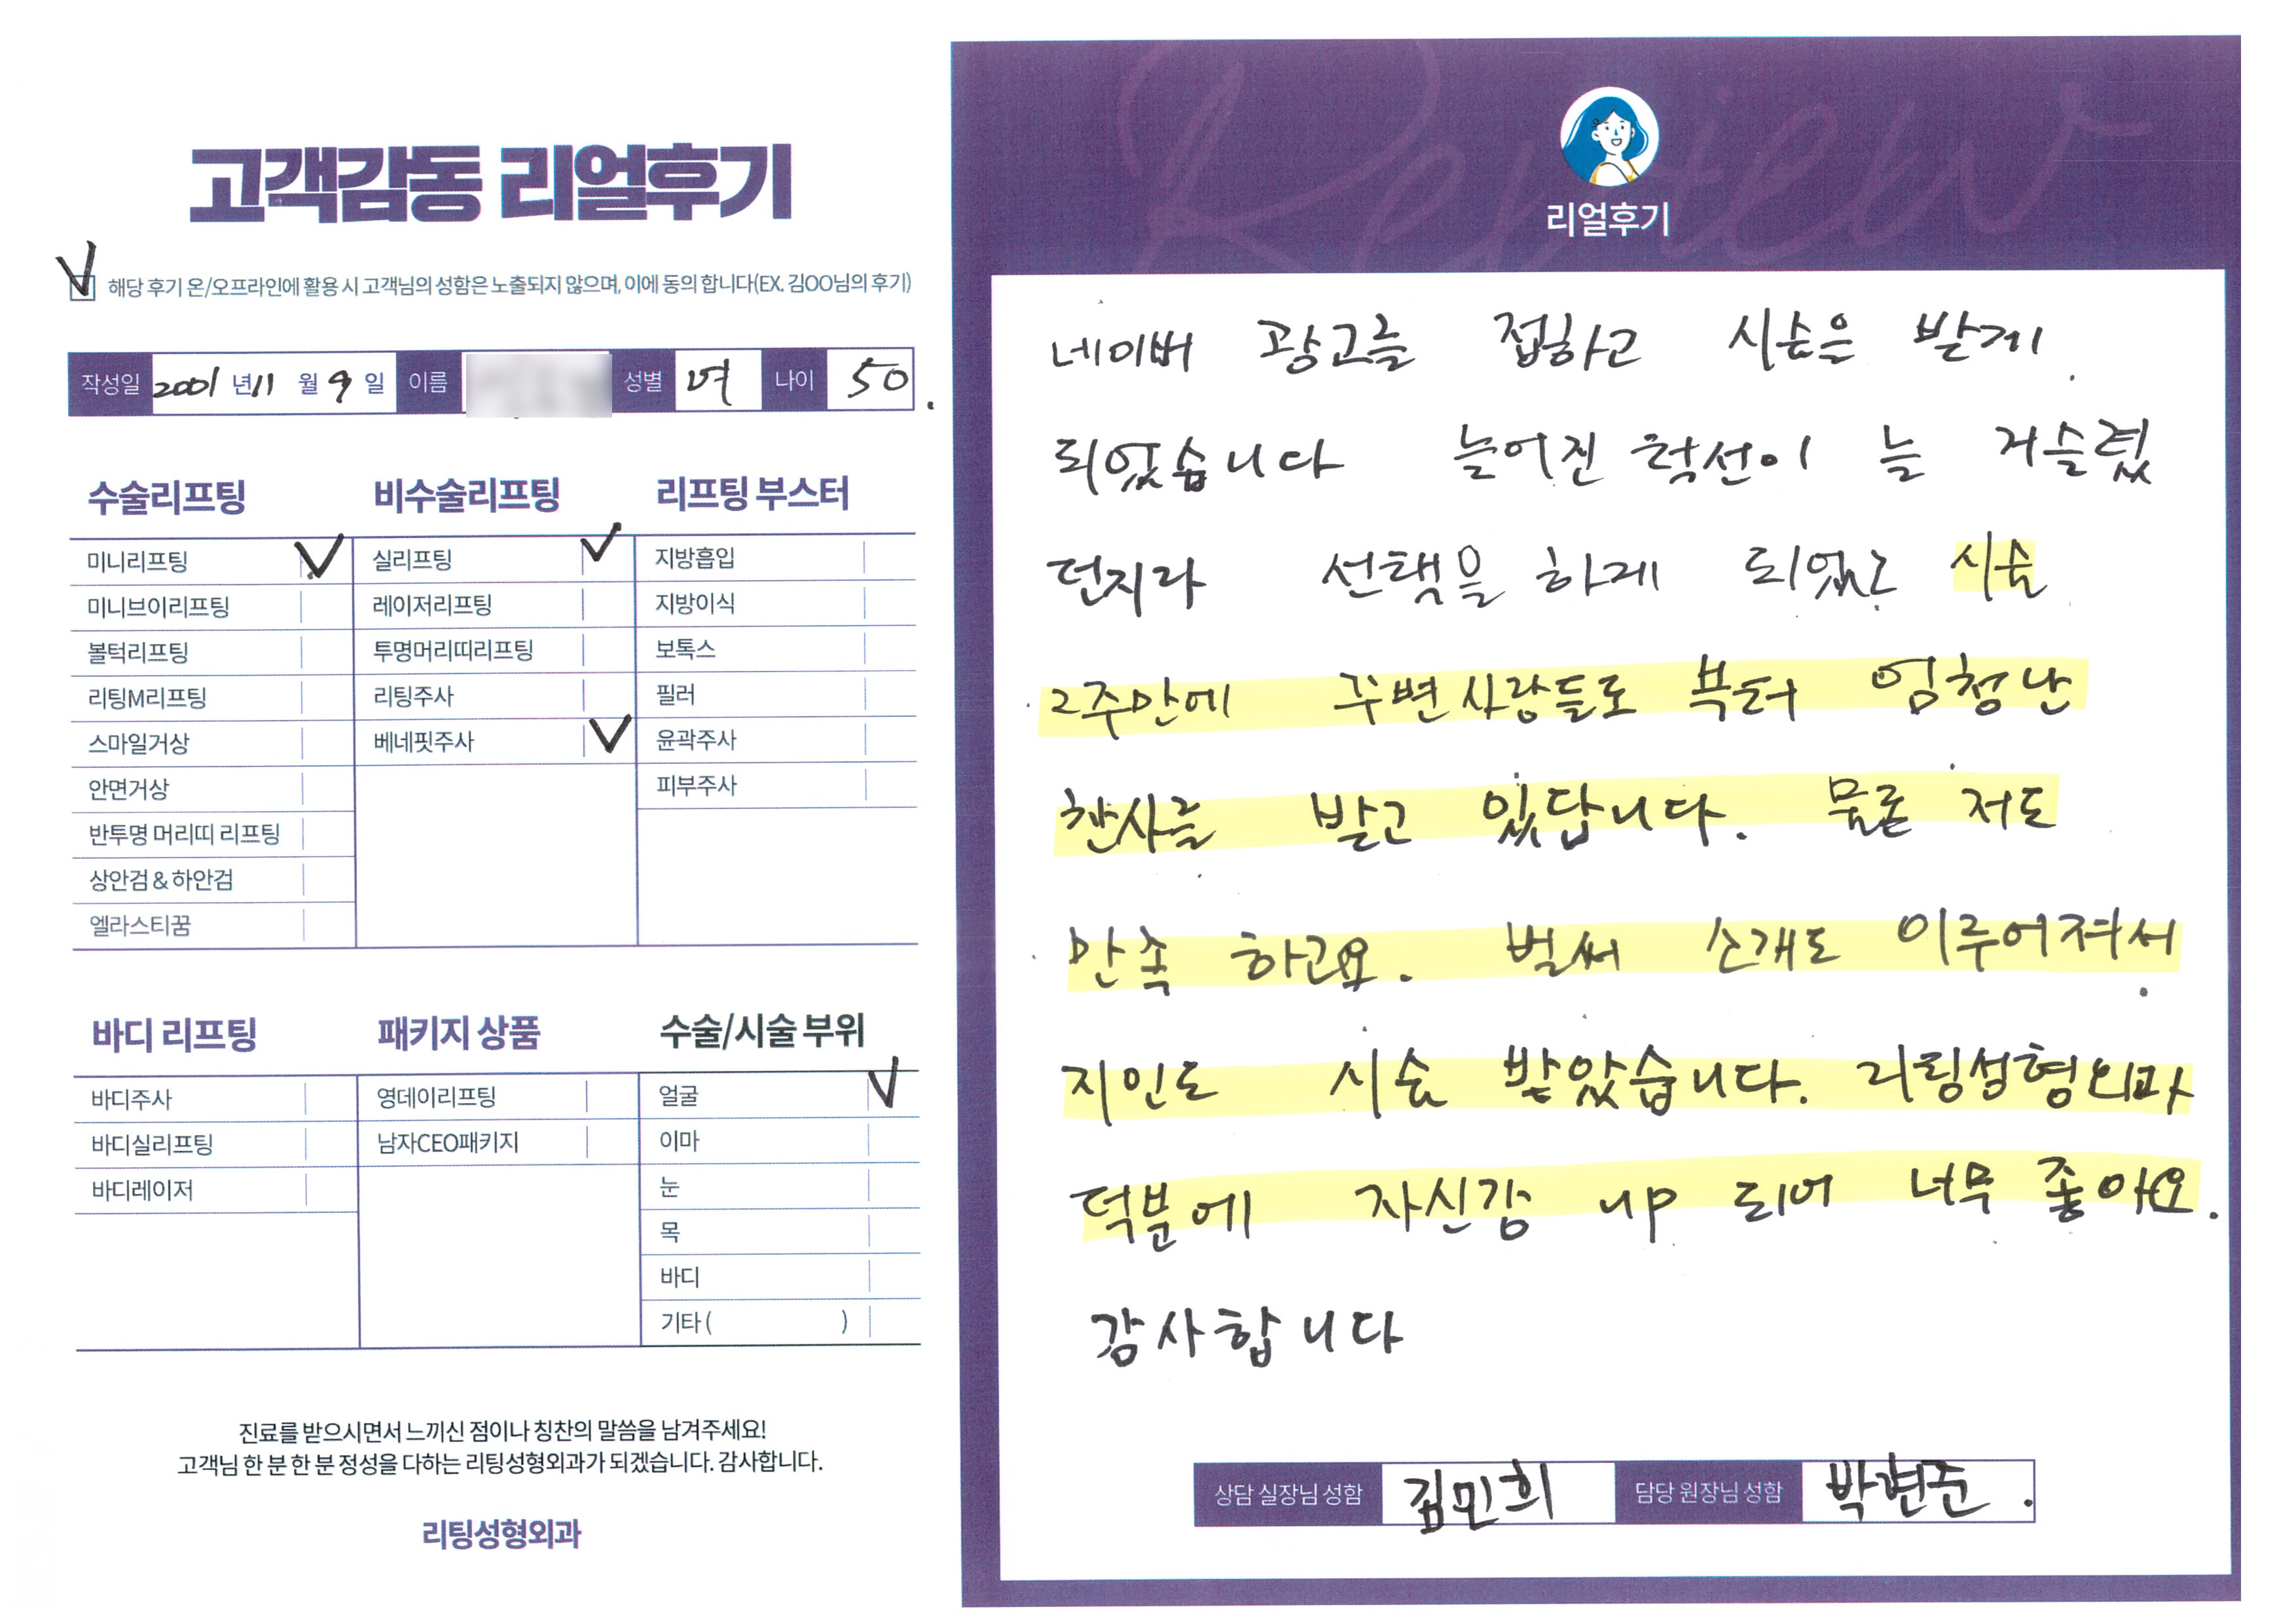 고객감동 리얼후기
해당 후기 온/오프라인에 활용 시 고객님의 성함은 노출되지 않으며, 이에 동의 합니다(EX. 김OO님의 후기)
작성일 2001 년 11 월 9 일 이름 성별 여 나이 50.
수술리프팅
미니리프팅
미니브이리프팅
볼턱리프팅
리팅M리프팅
스마일거상
안면거상
반투명 머리띠 리프팅
상안검 & 하안검
엘라스티꿈
비수술리프팅
실리프팅
레이저리프팅
투명머리띠리프팅
리팅주사
베네핏주사
리프팅 부스터
지방흡입
지방이식
보톡스
필러
윤곽주사
피부주사
바디 리프팅
바디주사
바디실리프팅
바디레이저
패키지 상품
영데이리프팅
남자CEO패키지
수술/시술 부위
얼굴
이마
눈
목
바디
기타 ( )
진료를 받으시면서 느끼신 점이나 칭찬의 말씀을 남겨주세요!
고객님 한 분 한 분 정성을 다하는 리팅성형외과가 되겠습니다. 감사합니다.
리팅성형외과
Review
리얼후기
네이버 광고를 접하고 시술은 받게
되었습니다 늘어진 턱선이 늘 거슬렸
던지라 선택을 하게 되었고 시술
2주만에 주변사람들로 부터 엄청난
찬사를 받고 있답니다. 물론 저도
만족 하고요. 벌써 소개도 이루어져서
지인도 시술 받았습니다. 리팅성형외과
덕분에 자신감 up 되어 너무 좋아요.
감사합니다
상담 실장님 성함 김민희 담당 원장님 성함 박현준.